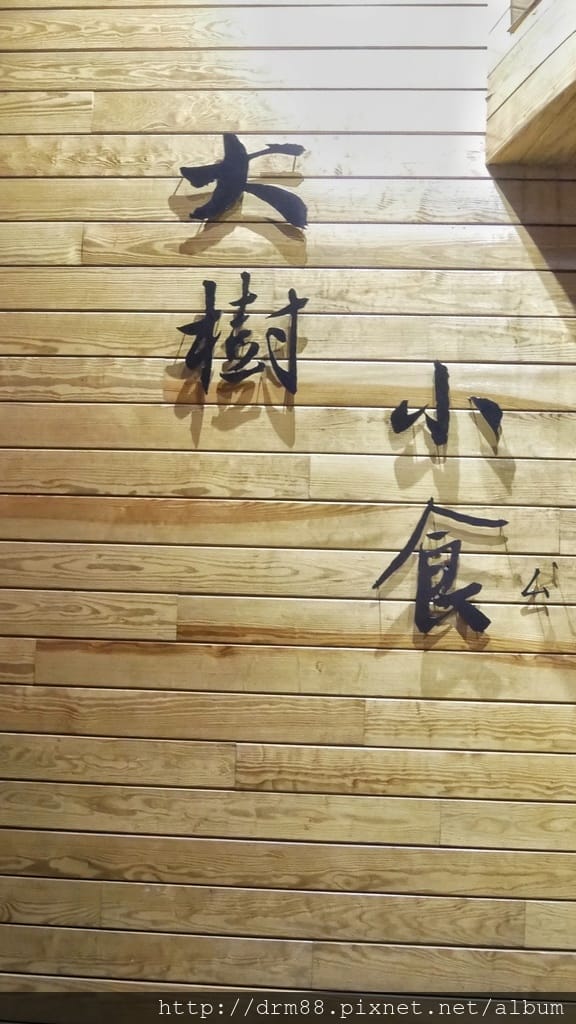 大樹
小食
台
http://drm88.pixnet.net/album